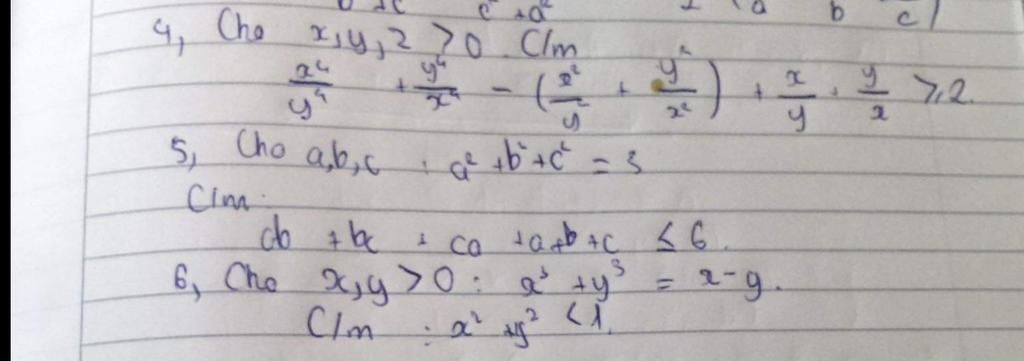 b + c c² + a² 2 (a b c)
4, Cho x, y, z > 0 C/m
x⁴/y⁴ + y⁴/x⁴ - (x²/y² + y²/x²) + x/y + y/x ≥ 2.
5, Cho a, b, c : a² + b² + c² = 3
C/m :
ab + bc + ca + a + b + c ≤ 6.
6, Cho x, y > 0 : x³ + y³ = x - y.
C/m : x² + y² < 1.